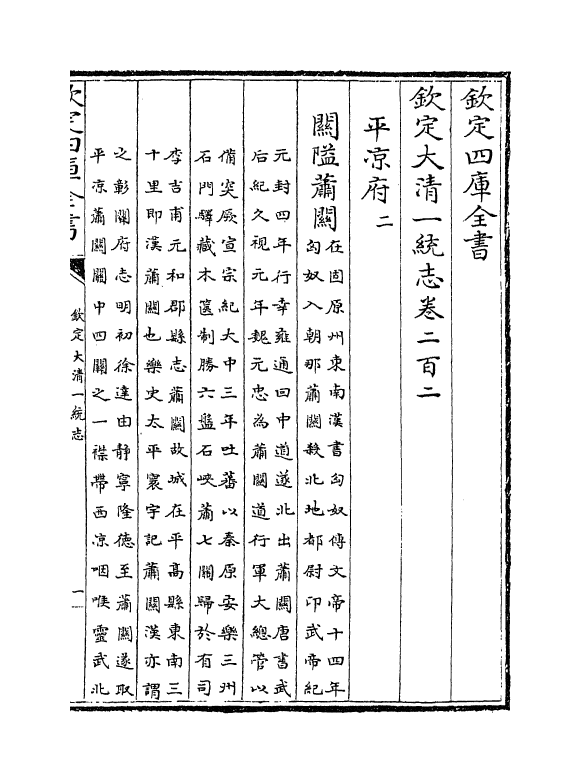 欽定四庫全書
欽定大清一統志卷二百二
平凉府二
關隘蕭關
在固原州東南漢書匈奴傳文帝十四年
匈奴入朝那蕭關殺北地都尉卬武帝紀
元封四年行幸雍通回中道遂北出蕭關唐書武
后紀久視元年魏元忠為蕭關道行軍大總管以
備突厥宣宗紀大中三年吐蕃以秦原安樂三州
石門驛藏木篋制勝六盤石峽蕭七關歸於有司
李吉甫元和郡縣志蕭關故城在平高縣東南三
十里即漢蕭關也樂史太平寰宇記蕭關漢亦謂
之彰關府志明初徐達由静寧隆德至蕭關遂取
平凉蕭關關中四關之一襟帶西凉咽喉靈武北
欽定四庫全書
欽定大清一統志
一